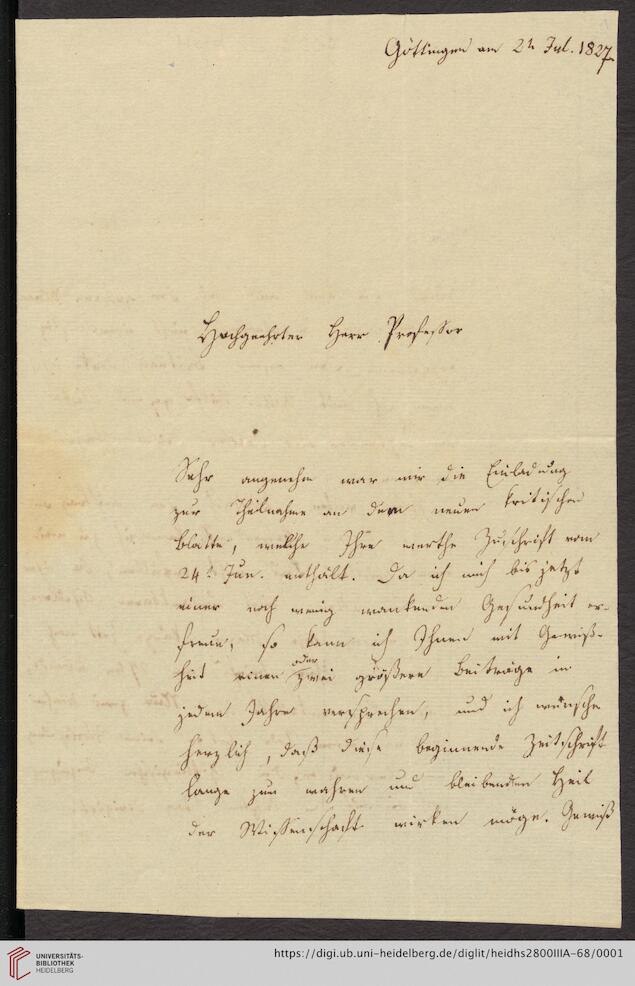 Göttingen am 2t Jul. 1827.
Hochgeehrter Herr Professor
Sehr angenehm war mir die Einladung
zur Theilnahme an dem neuen kritischen
Blatte, welche Ihre werthe Zuschrift vom
24t Jun. enthält. Da ich mich bis jetzt
einer noch wenig wankenden Gesundheit er-
freue, so kann ich Ihnen mit Gewiß-
heit einen oder zwei größere Beiträge in
jedem Jahre versprechen, und ich wünsche
herzlich, daß diese beginnende Zeitschrift
lange zum wahren und bleibenden Heil
der Wissenschaft wirken möge. Gewiß
UNIVERSITÄTS-
BIBLIOTHEK
HEIDELBERG
https://digi.ub.uni-heidelberg.de/diglit/heidhs2800IIIA-68/0001